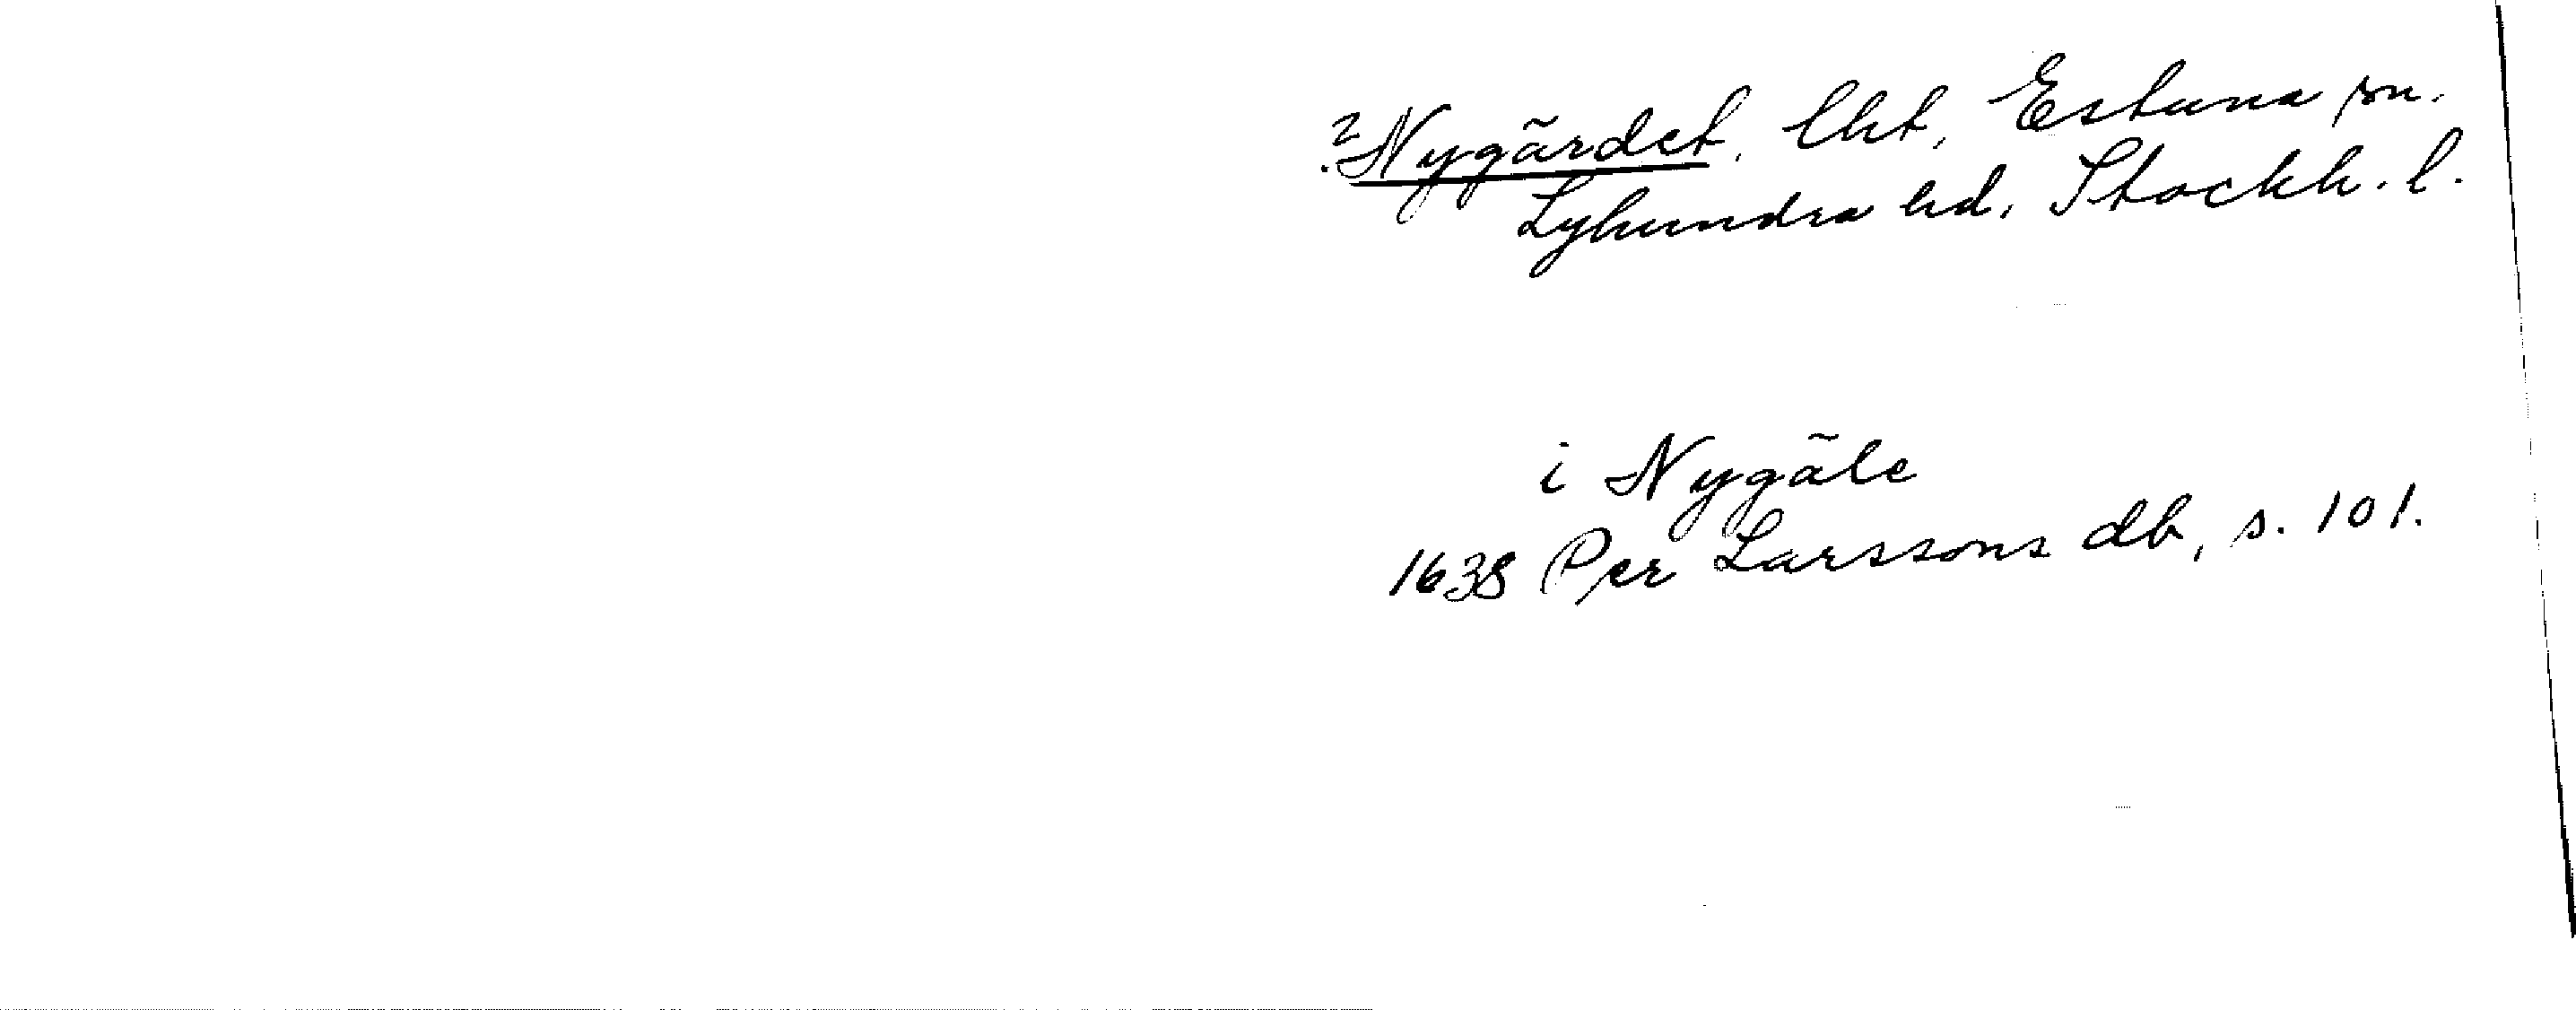 ?Nygärdet, lht, Estuna sn.
Lyhundra hd, Stockh. l.
i Nygäle
1638 Per Larssons db, s. 101.